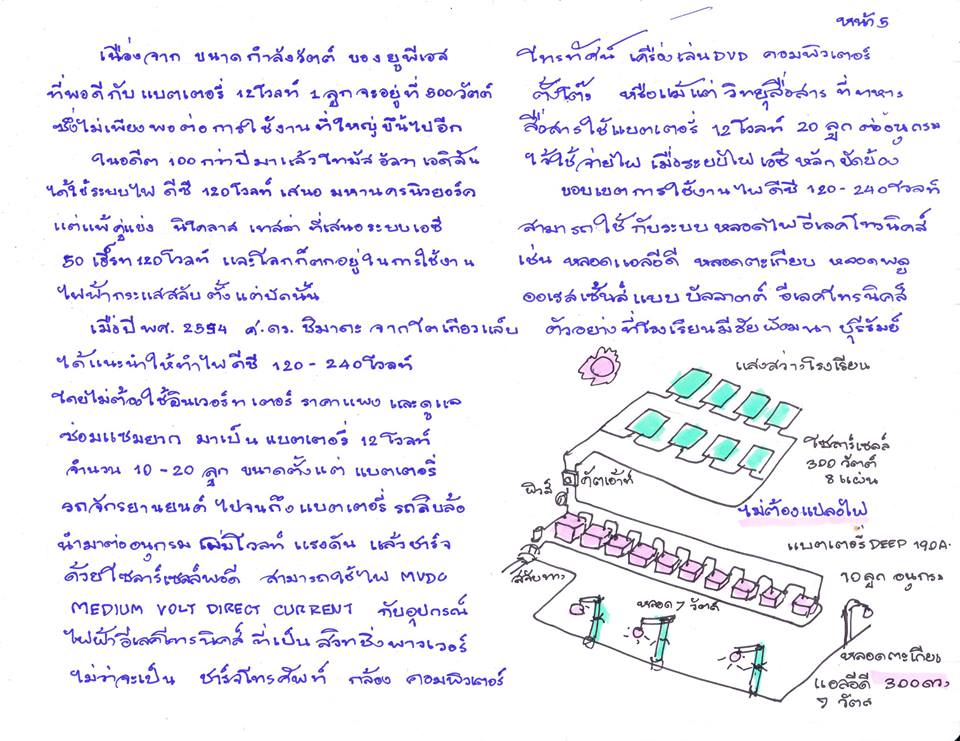 หน้า 5
เนื่องจาก ขนาดกำลังวัตต์ ของ ยูพีเอส
ที่พอดีกับ แบตเตอรี่ 12 โวลท์ 1 ลูก จะอยู่ที่ 800 วัตต์
ซึ่งไม่เพียงพอต่อ การใช้งาน ที่ใหญ่ ขึ้นไปอีก
ในอดีต 100 กว่าปี มาแล้ว โทมัส อัลวา เอดิสัน
ได้ใช้ระบบไฟ ดีซี 120 โวลท์ เสนอ มหานครนิวยอร์ค
แต่แพ้คู่แข่ง นิโคลาส เทสล่า ที่เสนอระบบเอซี
50 เฮิ๊รท 120 โวลท์ และโลกก็ตกอยู่ในการใช้งาน
ไฟฟ้ากระแสสลับ ตั้งแต่บัดนั้น
เมื่อปี พศ. 2554 ศ.ดร. ชิมาดะ จากโตเกียวแล็บ
ได้แนะนำให้ทำไฟดีซี 120 - 240 โวลท์
โดยไม่ต้องใช้อินเวอร์ทเตอร์ ราคาแพง และดูแล
ซ่อมแซมยาก มาเป็น แบตเตอรี่ 12 โวลท์
จำนวน 10 - 20 ลูก ขนาดตั้งแต่ แบตเตอรี่
รถจักรยานยนต์ ไปจนถึง แบตเตอรี่ รถสิบล้อ
นำมาต่ออนุกรม เพิ่มโวลท์ แรงดัน แล้วชาร์จ
ด้วยโซลาร์เซลล์พอดี สามารถใช้ไฟ MVDC
MEDIUM VOLT DIRECT CURRENT กับอุปกรณ์
ไฟฟ้าอีเลคโทรนิคส์ ที่เป็น สวิทชิ่ง พาวเวอร์
ไม่ว่าจะเป็น ชาร์จโทรศัพท์ กล้อง คอมพิวเตอร์
โทรทัศน์ เครื่องเล่น DVD คอมพิวเตอร์
ตั้งโต๊ะ หรือแม้แต่ วิทยุสื่อสาร ที่ ทหาร
สื่อสารใช้แบตเตอรี่ 12 โวลท์ 20 ลูก ต่ออนุกรม
ไว้ใช้ จ่ายไฟ เมื่อระบบไฟ เอซี หลัก ขัดข้อง
ขอบเขตการใช้งานไฟดีซี 120 - 240 โวลท์
สามารถใช้ กับระบบ หลอดไฟ อีเลคโทรนิคส์
เช่น หลอดแอลอีดี หลอดตะเกียบ หลอดฟลู
ออเรสเซ้นส์ แบบ บัลลาสต์ อีเลคโทรนิคส์
ตัวอย่าง ที่โรงเรียนมีชัยพัฒนา บุรีรัมย์
แสงสว่างโรงเรียน
โซลาร์เซลล์
300 วัตต์
8 แผ่น
คัตเอ้าท์
ฟิวส์
ไม่ต้องแปลงไฟ
แบตเตอรี่ DEEP 190A.
10 ลูก อนุกรม
สลับทาง
หลอด 7 วัตต์
หลอดตะเกียบ
แอลอีดี 300 ดวง
7 วัตต์